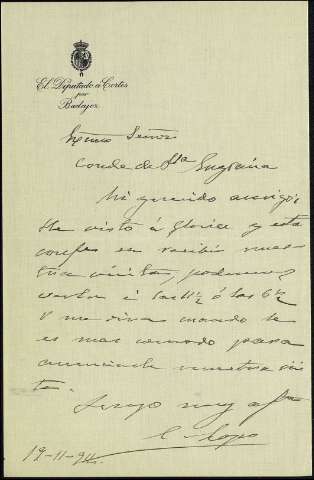 El Diputado a Cortes
por
Badajoz
Excmo Señor
Conde de Sta Engracia
Mi querido amigo,
He visto á Llorice y está
conforme en recibir nues
tra visita, podemos
verlo á las 11½ ó las 6½
V me dira cuando le
es mas comodo para
anunciarle nuestra visi
ta.
Suyo muy afmo
Lopo
19-11-94.